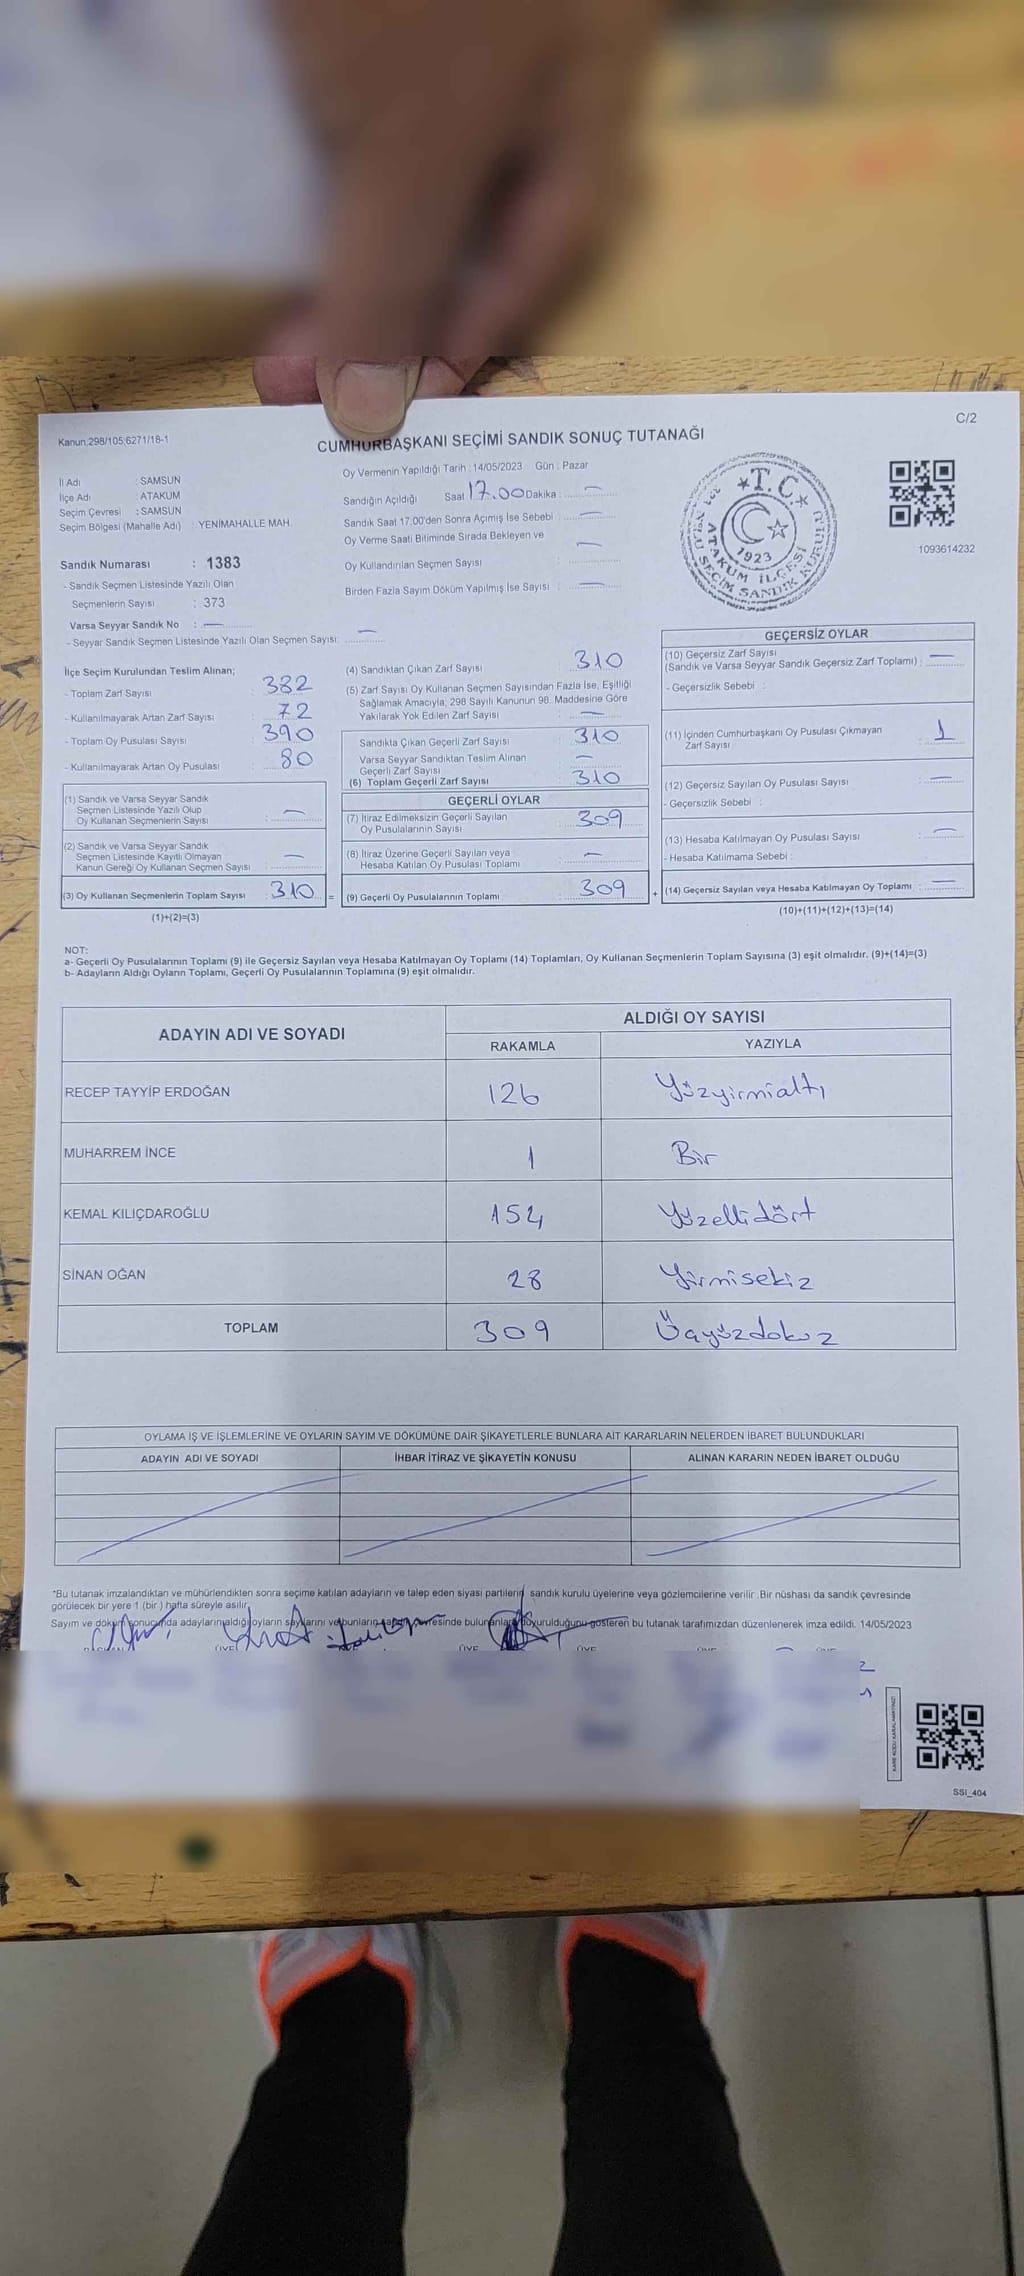 Kanun;298/105;6271/18-1
C/2
CUMHURBAŞKANI SEÇİMİ SANDIK SONUÇ TUTANAĞI
İl Adı : SAMSUN
İlçe Adı : ATAKUM
Seçim Çevresi : SAMSUN
Seçim Bölgesi (Mahalle Adı) : YENİMAHALLE MAH.
Sandık Numarası : 1383
- Sandık Seçmen Listesinde Yazılı Olan
Seçmenlerin Sayısı : 373
Varsa Seyyar Sandık No : —
- Seyyar Sandık Seçmen Listesinde Yazılı Olan Seçmen Sayısı: —
Oy Vermenin Yapıldığı Tarih : 14/05/2023 Gün : Pazar
Sandığın Açıldığı Saat 17.00 Dakika : —
Sandık Saat 17:00'den Sonra Açımış İse Sebebi : —
Oy Verme Saati Bitiminde Sırada Bekleyen ve
Oy Kullandırılan Seçmen Sayısı : —
Birden Fazla Sayım Döküm Yapılmış İse Sayısı : —
T.C.
1923
ATAKUM İLÇESİ
SEÇİM SANDIK KURULU
1093614232
İlçe Seçim Kurulundan Teslim Alınan;
- Toplam Zarf Sayısı : 382
- Kullanılmayarak Artan Zarf Sayısı : 72
- Toplam Oy Pusulası Sayısı : 390
- Kullanılmayarak Artan Oy Pusulası : 80
(1) Sandık ve Varsa Seyyar Sandık
Seçmen Listesinde Yazılı Olup
Oy Kullanan Seçmenlerin Sayısı : —
(2) Sandık ve Varsa Seyyar Sandık
Seçmen Listesinde Kayıtlı Olmayan
Kanun Gereği Oy Kullanan Seçmen Sayısı : —
(3) Oy Kullanan Seçmenlerin Toplam Sayısı : 310 =
(1)+(2)=(3)
(4) Sandıktan Çıkan Zarf Sayısı : 310
(5) Zarf Sayısı Oy Kullanan Seçmen Sayısından Fazla İse, Eşitliği
Sağlamak Amacıyla, 298 Sayılı Kanunun 98. Maddesine Göre
Yakılarak Yok Edilen Zarf Sayısı : —
Sandıkta Çıkan Geçerli Zarf Sayısı : 310
Varsa Seyyar Sandıktan Teslim Alınan
Geçerli Zarf Sayısı : —
(6) Toplam Geçerli Zarf Sayısı : 310
GEÇERLİ OYLAR
(7) İtiraz Edilmeksizin Geçerli Sayılan
Oy Pusulalarının Sayısı : 309
(8) İtiraz Üzerine Geçerli Sayılan veya
Hesaba Katılan Oy Pusulası Toplamı : —
(9) Geçerli Oy Pusulalarının Toplamı : 309 +
GEÇERSİZ OYLAR
(10) Geçersiz Zarf Sayısı
(Sandık ve Varsa Seyyar Sandık Geçersiz Zarf Toplamı) : —
- Geçersizlik Sebebi :
(11) İçinden Cumhurbaşkanı Oy Pusulası Çıkmayan
Zarf Sayısı : 1
(12) Geçersiz Sayılan Oy Pusulası Sayısı : —
- Geçersizlik Sebebi :
(13) Hesaba Katılmayan Oy Pusulası Sayısı : —
- Hesaba Katılmama Sebebi :
(14) Geçersiz Sayılan veya Hesaba Katılmayan Oy Toplamı : —
(10)+(11)+(12)+(13)=(14)
NOT:
a- Geçerli Oy Pusulalarının Toplamı (9) ile Geçersiz Sayılan veya Hesaba Katılmayan Oy Toplamı (14) Toplamları, Oy Kullanan Seçmenlerin Toplam Sayısına (3) eşit olmalıdır. (9)+(14)=(3)
b- Adayların Aldığı Oyların Toplamı, Geçerli Oy Pusulalarının Toplamına (9) eşit olmalıdır.
ADAYIN ADI VE SOYADI ALDIĞI OY SAYISI
RAKAMLA YAZIYLA
RECEP TAYYİP ERDOĞAN 126 Yüzyirmialtı
MUHARREM İNCE 1 Bir
KEMAL KILIÇDAROĞLU 154 Yüzellidört
SİNAN OĞAN 28 Yirmisekiz
TOPLAM 309 Üçyüzdokuz
OYLAMA İŞ VE İŞLEMLERİNE VE OYLARIN SAYIM VE DÖKÜMÜNE DAİR ŞİKAYETLERLE BUNLARA AİT KARARLARIN NELERDEN İBARET BULUNDUKLARI
ADAYIN ADI VE SOYADI İHBAR İTİRAZ VE ŞİKAYETİN KONUSU ALINAN KARARIN NEDEN İBARET OLDUĞU
*Bu tutanak imzalandıktan ve mühürlendikten sonra seçime katılan adayların ve talep eden siyasi partilerin sandık kurulu üyelerine veya gözlemcilerine verilir. Bir nüshası da sandık çevresinde
görülecek bir yere 1 (bir) hafta süreyle asılır.
Sayım ve döküm sonucunda adayların aldığı oyların sayılarını ve bunların sandık çevresinde bulunanlara duyurulduğunu gösteren bu tutanak tarafımızdan düzenlenerek imza edildi. 14/05/2023
SSI_404